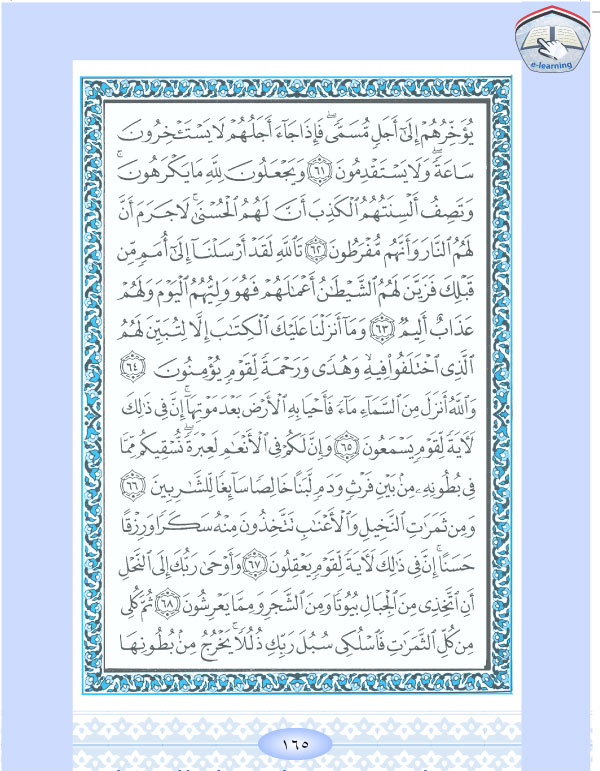 e-learning
يُؤَخِّرُهُمْ إِلَىٰٓ أَجَلٍ مُّسَمًّىۖ فَإِذَا جَآءَ أَجَلُهُمْ لَا يَسْتَـْٔخِرُونَ
سَاعَةً وَلَا يَسْتَقْدِمُونَ ٦١ وَيَجْعَلُونَ لِلَّهِ مَا يَكْرَهُونَۚ
وَتَصِفُ أَلْسِنَتُهُمُ الْكَذِبَ أَنَّ لَهُمُ الْحُسْنَىٰۚ لَا جَرَمَ أَنَّ
لَهُمُ النَّارَ وَأَنَّهُم مُّفْرَطُونَ ٦٢ تَاللَّهِ لَقَدْ أَرْسَلْنَآ إِلَىٰٓ أُمَمٍ مِّن
قَبْلِكَ فَزَيَّنَ لَهُمُ الشَّيْطَٰنُ أَعْمَٰلَهُمْ فَهُوَ وَلِيُّهُمُ الْيَوْمَ وَلَهُمْ
عَذَابٌ أَلِيمٌ ٦٣ وَمَآ أَنزَلْنَا عَلَيْكَ الْكِتَٰبَ إِلَّا لِتُبَيِّنَ لَهُمُ
الَّذِي اخْتَلَفُوا۟ فِيهِۙ وَهُدًى وَرَحْمَةً لِّقَوْمٍ يُؤْمِنُونَ ٦٤
وَاللَّهُ أَنزَلَ مِنَ السَّمَآءِ مَآءً فَأَحْيَا بِهِ الْأَرْضَ بَعْدَ مَوْتِهَآۚ إِنَّ فِي ذَٰلِكَ
لَأٓيَةً لِّقَوْمٍ يَسْمَعُونَ ٦٥ وَإِنَّ لَكُمْ فِي الْأَنْعَٰمِ لَعِبْرَةًۖ نُّسْقِيكُم مِّمَّا
فِي بُطُونِهِۦ مِنۢ بَيْنِ فَرْثٍ وَدَمٍ لَّبَنًا خَالِصًا سَآئِغًا لِّلشَّٰرِبِينَ ٦٦
وَمِن ثَمَرَٰتِ النَّخِيلِ وَالْأَعْنَٰبِ تَتَّخِذُونَ مِنْهُ سَكَرًا وَرِزْقًا
حَسَنًاۗ إِنَّ فِي ذَٰلِكَ لَأٓيَةً لِّقَوْمٍ يَعْقِلُونَ ٦٧ وَأَوْحَىٰ رَبُّكَ إِلَى النَّحْلِ
أَنِ اتَّخِذِي مِنَ الْجِبَالِ بُيُوتًا وَمِنَ الشَّجَرِ وَمِمَّا يَعْرِشُونَ ٦٨ ثُمَّ كُلِي
مِن كُلِّ الثَّمَرَٰتِ فَاسْلُكِي سُبُلَ رَبِّكِ ذُلُلًاۚ يَخْرُجُ مِنۢ بُطُونِهَا
١٦٥